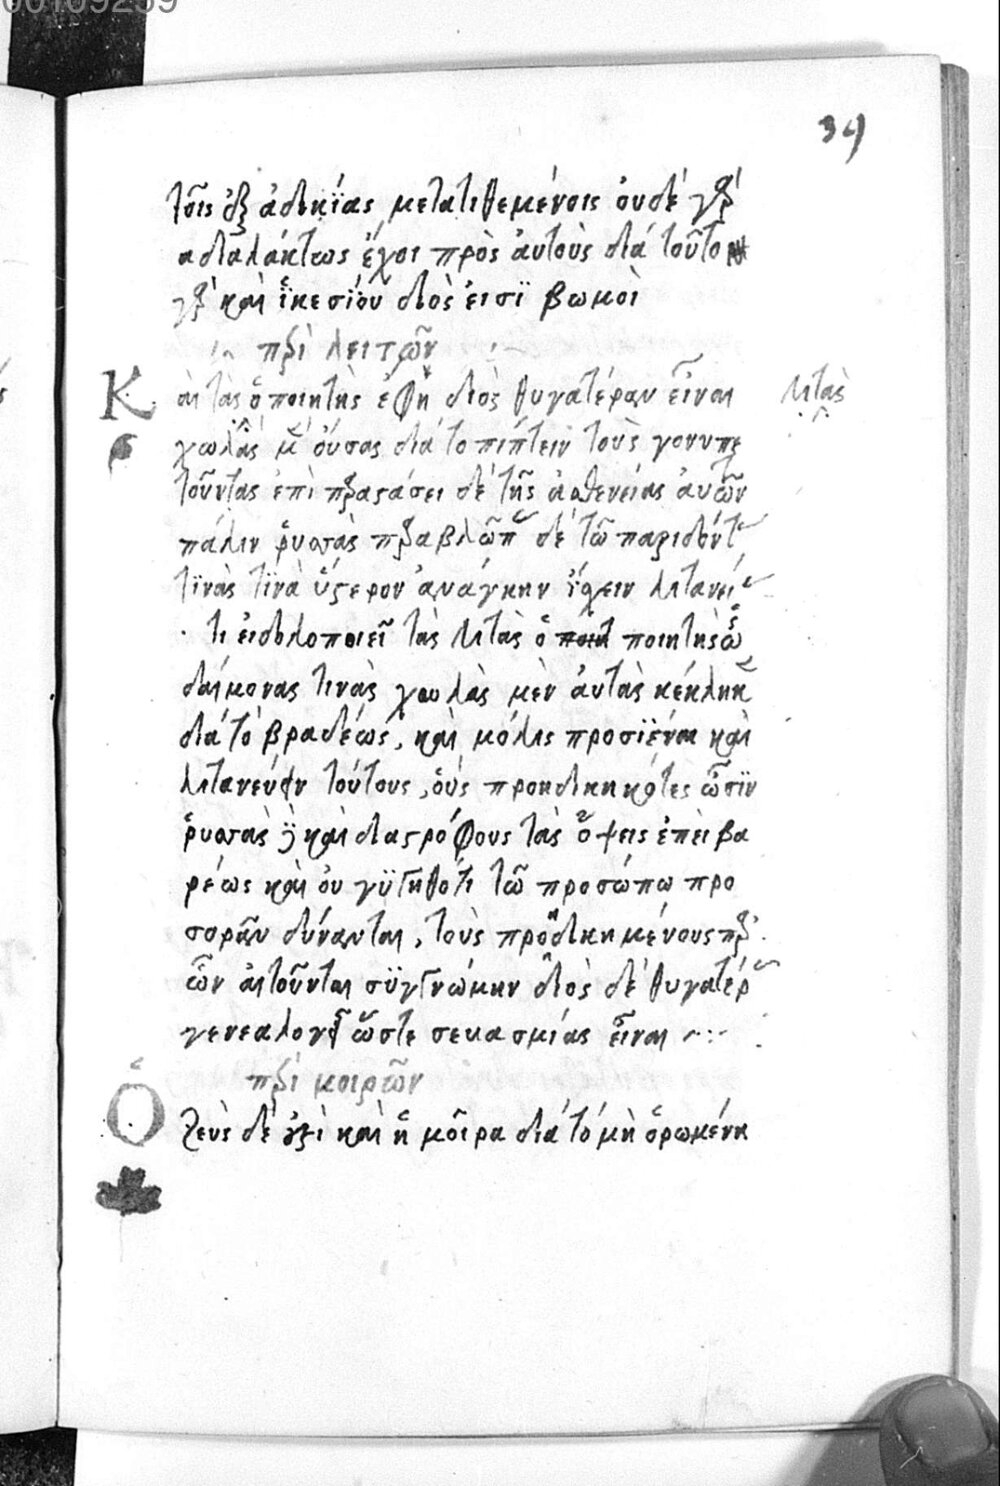 00109259
39
τοῖς ἐξ ἀδικΐας μετατιθεμένοις ὀυδὲ γὰρ
αδιαλάκτως ἔχοι πρὸς ἀυτοὺς διά τοῦτο
γὰρ καὶ ἵκεσίου διὸς ἐισῒ βωμοὶ
περὶ λειτῶν
Κ
αὶ τὰς ὁ ποιητὴς ἐφη διὸς θυγατέραν εἶναι
λιτὰς
χωλὰς μ ὀύσας διά το πίπτειν τοὺς γονυπε
τοῦντας ἐπὶ παραστάσει δὲ τῆς ἀσθενείας ἀυτῶν
πάλιν ῥυσσὰς παραβλῶπ δὲ τῶ παριδόντ
τϊνὰς τϊνὰ ὕστερον ἀνάγκην ἴχειν λιτανεί
τι ἐιδολοποιεῖ τὰς λιτὰς ὁ ποιητὴς ὡ
δαίμονας τινὰς χωλὰς μὲν ἀυτὰς κέκληκ
διά τὸ βραδέως, καὶ μόλις προσϊέναι καὶ
λιτανεύειν τούτους, ὁύς προηδικηκότες ὦσϊν
ῥυσσὰς καὶ διαστρόφους τὰς ὄψεις ἐπὲι βα
ρέως καὶ ὀυ γϋγηθότι τῶ προσώπω προ
σορᾶν δύνανται, τοὺς προδικημένους παρ
ὧν ἀιτοῦνται σϋγγνώμην διὸς δὲ θυγατέρ
γενεαλογεῖ ὥστε σεκασμίας εἶναι
περὶ μοιρῶν
Ὁ
ζεὺς δὲ ἐστὶ καὶ ἡ μοῖρα διά τό μὴ ὁρωμένη